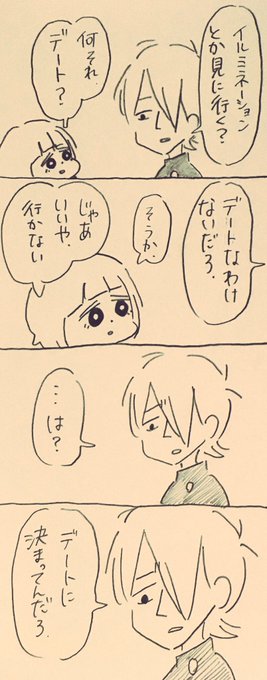 イルミネーション
とか見に行く?
何それ.
デート?
デートなわけ
ないだろ.
そうか.
じゃあ
いいや.
行かない
…は?
デートに
決まってんだろ.